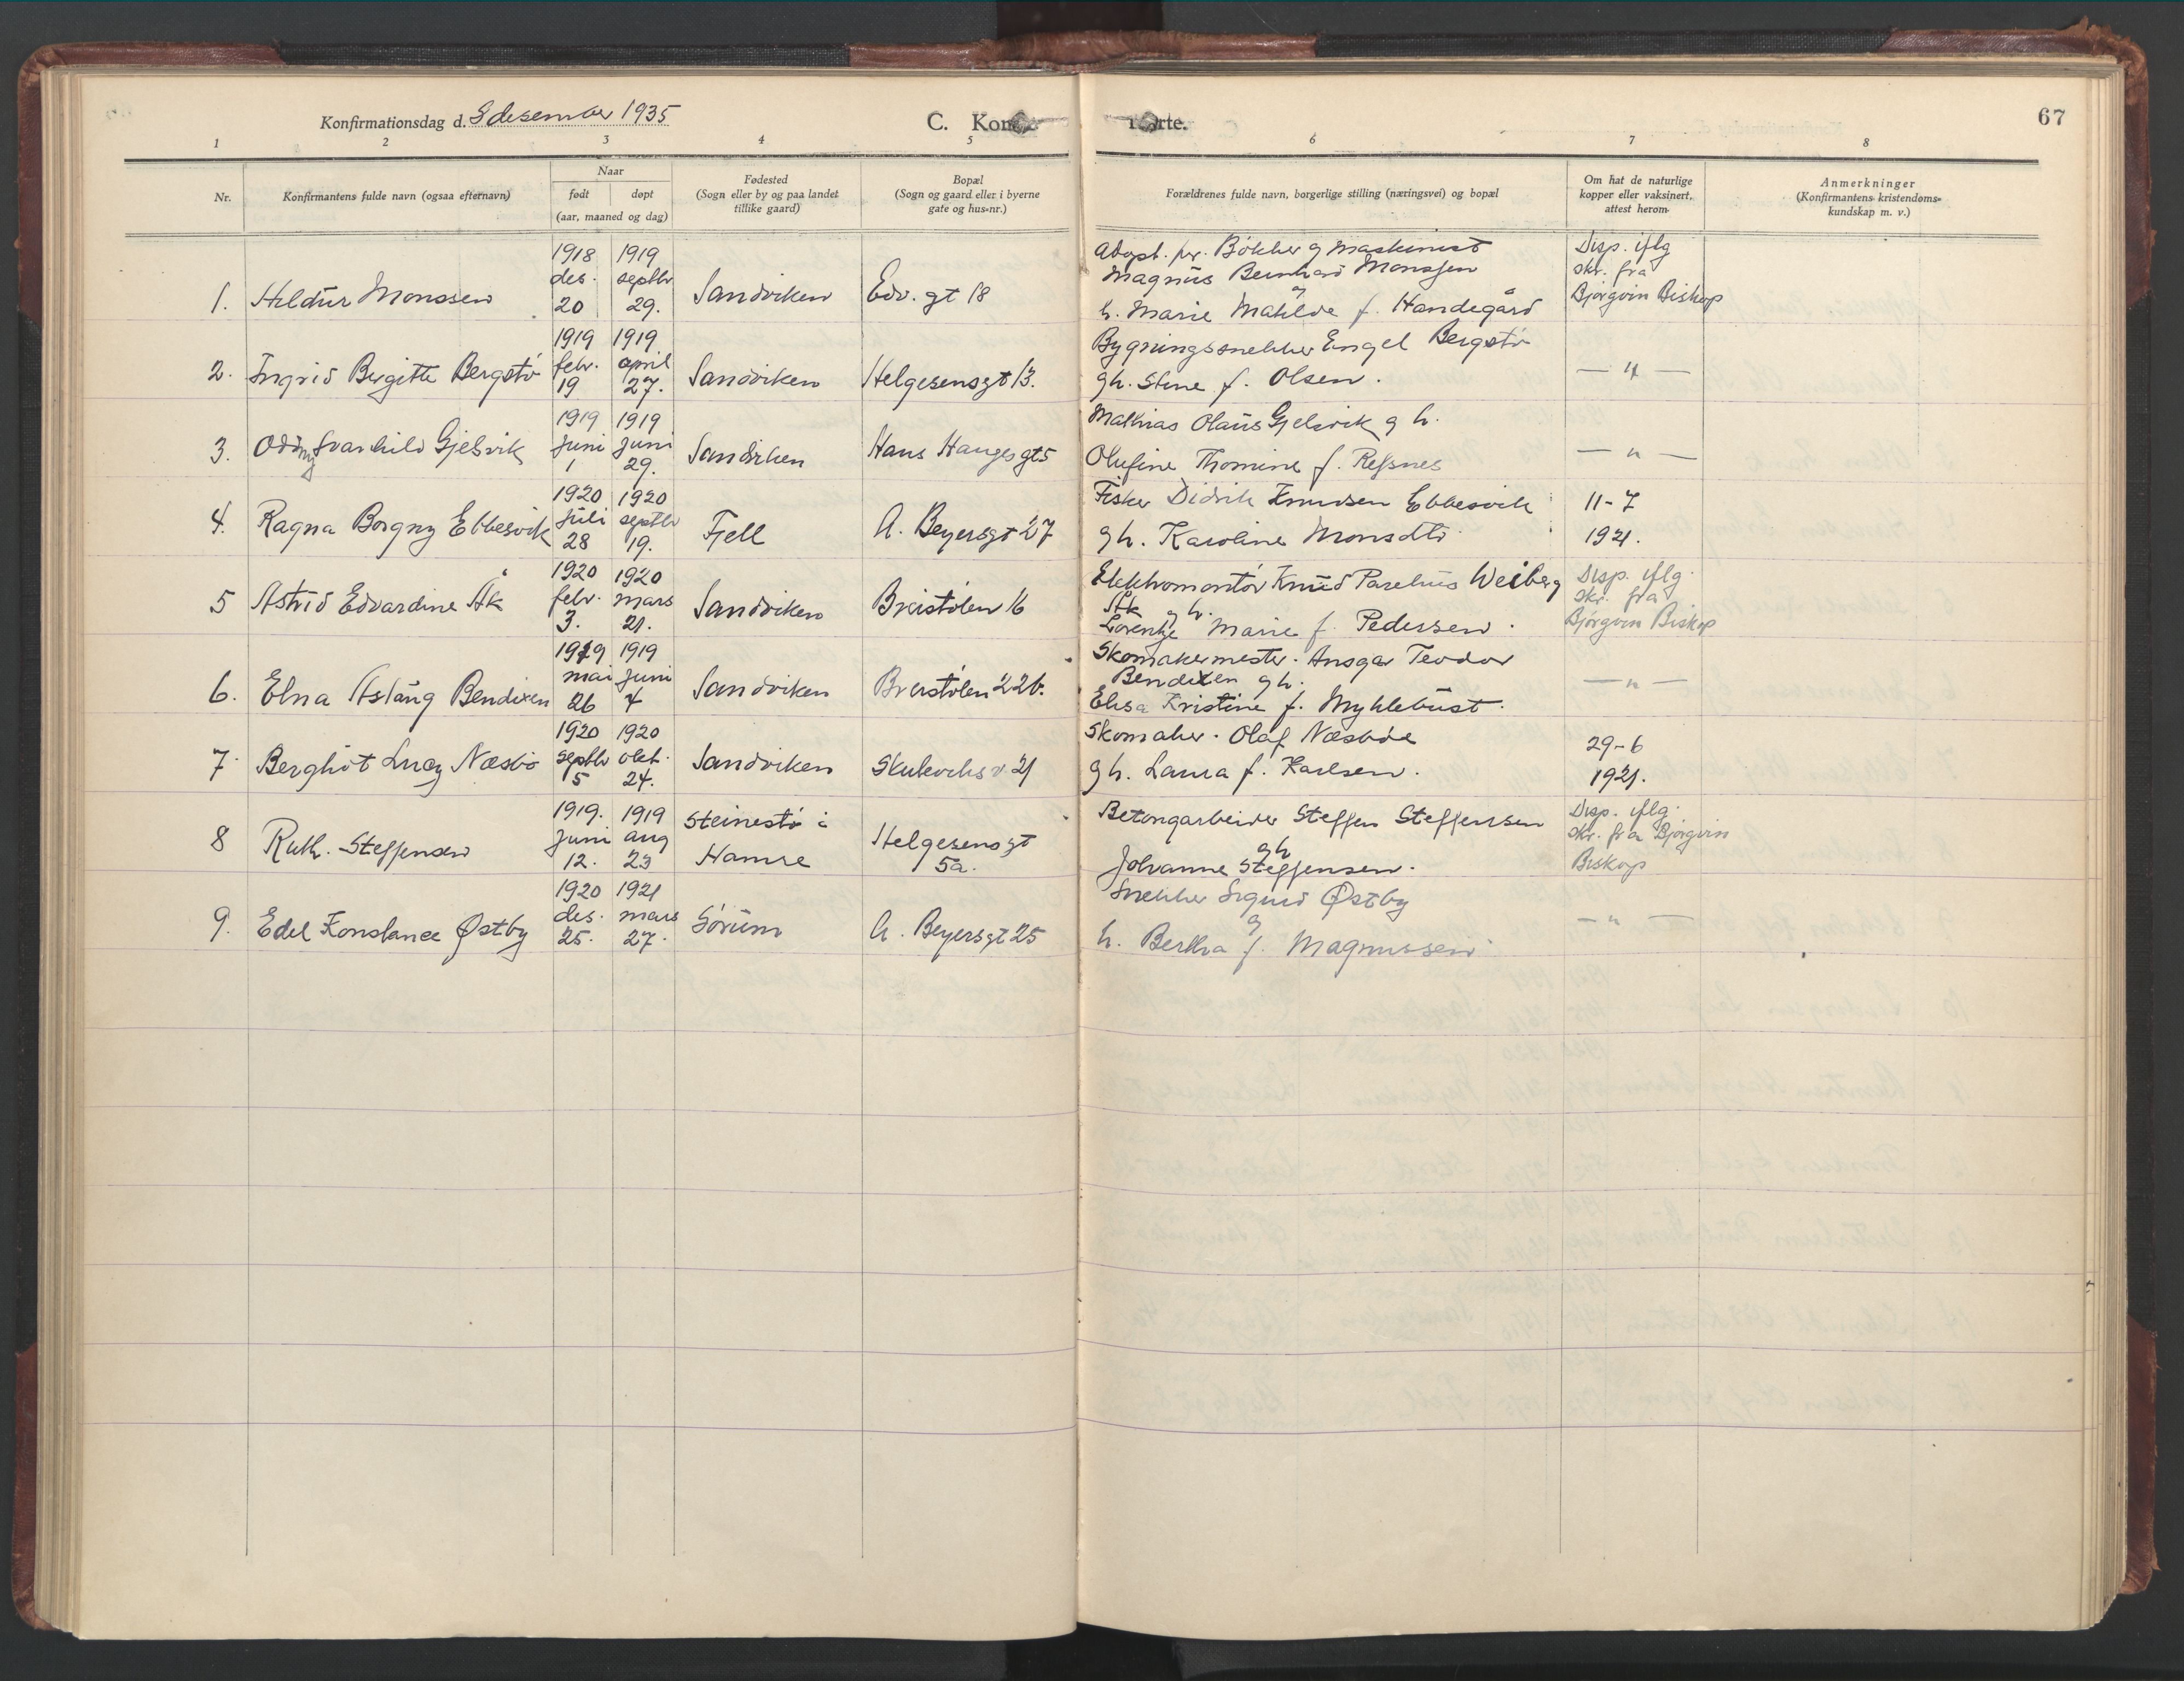 Konfirmationsdag d. 8 desember 1935
C. Kon
rte.
67
1 2 3 4 5 6 7 8
Nr.
Konfirmantens fulde navn (ogsaa efternavn)
Naar
født døpt
(aar, maaned og dag)
Fødested
(Sogn eller by og paa landet
tillike gaard)
Bopæl
(Sogn og gaard eller i byerne
gate og hus-nr.)
Forældrenes fulde navn, borgerlige stilling (næringsvei) og bopæl
Om hat de naturlige
kopper eller vaksinert,
attest herom.
Anmerkninger
(Konfirmantens kristendoms-
kundskap m. v.)
1. Hildur Monssen
1918 1919
des. septbr
20 29.
Sandviken
Edv. gt 18
Adopt. for. Bøkker og Maskinist
Magnus Bernhard Monssen
og
h. Marie Mathilde f. Handegård
Disp. iflg
skr. fra
Bjørgvin Biskop
2. Ingrid Birgitte Bergstø
1919 1919
febr. april
19 27.
Sandviken
Helgesensgt 13.
Bygningssnekker Engel Bergstø
gh. Stine f. Olsen.
— " —
3. Oddny Svanhild Gjelsvik
1919 1919
juni juni
1 29.
Sandviken
Hans Haugesgt 5
Mathias Olaus Gjelsvik g h.
Olufine Thomine f. Refsnes
— " —
4. Ragna Borgny Ebbesvik
1920 1920
juli septbr
28 19.
Fjell
A. Beyersgt 27
Fisker Didrik Knudsen Ebbesvik
gh. Karoline Monsdtr
11-7
1921.
5 Astrid Edvardine Åk
1920 1920
febr. mars
3. 21.
Sandviken
Breistølen 16
Elektromontør Knud Paselius Weiberg
Åk g h.
Lorentze Marie f. Pedersen.
Disp. iflg.
skr. fra
Bjørgvin Biskop
6. Elna Aslaug Bendixen
1919 1919
mai juni
26 4
Sandviken
Breistølen 22b.
Skomakermester. Ansgar Teodor
Bendixen gh.
Elisa Kristine f. Myklebust.
— " —
7. Bergliot Lucy Næsbø
1920 1920
septbr okt.
5 24.
Sandviken
Skuteviks v 21
Skomaker. Olaf Næsbøe
gh. Laura f. Karlsen.
29-6
1921.
8 Ruth. Steffensen
1919. 1919
juni aug
12. 23
Steinestø i
Hamre
Helgesensgt
5a.
Betongarbeider Steffen Steffensen
gh
Johanne Steffensen.
Disp. iflg.
skr. fra Bjørgvin
Biskop
9. Edel Konstance Østby
1920 1921
des. mars
25. 27.
Sørum
A. Beyersgt 25
Snekker Sigurd Østby
og
h. Bertha f. Magnussen
— " —